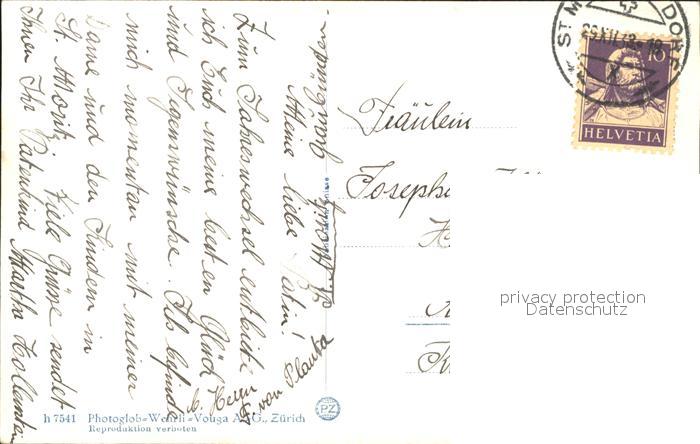 St. Moritz
Meine liebe Patin!
Zum Jahreswechsel entbiete
ich Euch meine besten Glück
und Segenswünsche. Ich befinde
mich momentan mit meiner
Dame und den Kindern in
St. Moritz. Viele Grüsse sendet
Ihnen Ihr Patenkind Martha
b. Herrn
von Planta
Fräulein
HELVETIA
10
privacy protection
Datenschutz
h 7541 Photoglob-Wehrli-Vouga A.G., Zürich
Reproduktion verboten
PZ